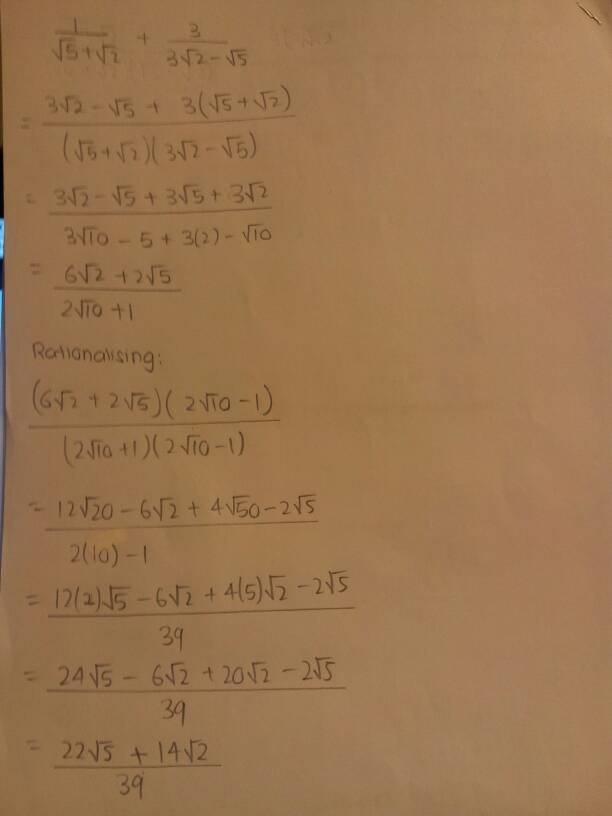 1/(√5+√2) + 3/(3√2-√5)
= (3√2-√5 + 3(√5+√2))/((√5+√2)(3√2-√5))
= (3√2-√5+3√5+3√2)/(3√10-5+3(2)-√10)
= (6√2+2√5)/(2√10+1)
Rationalising:
((6√2+2√5)(2√10-1))/((2√10+1)(2√10-1))
= (12√20-6√2+4√50-2√5)/(2(10)-1)
= (12(2)√5-6√2+4(5)√2-2√5)/39
= (24√5-6√2+20√2-2√5)/39
= (22√5+14√2)/39